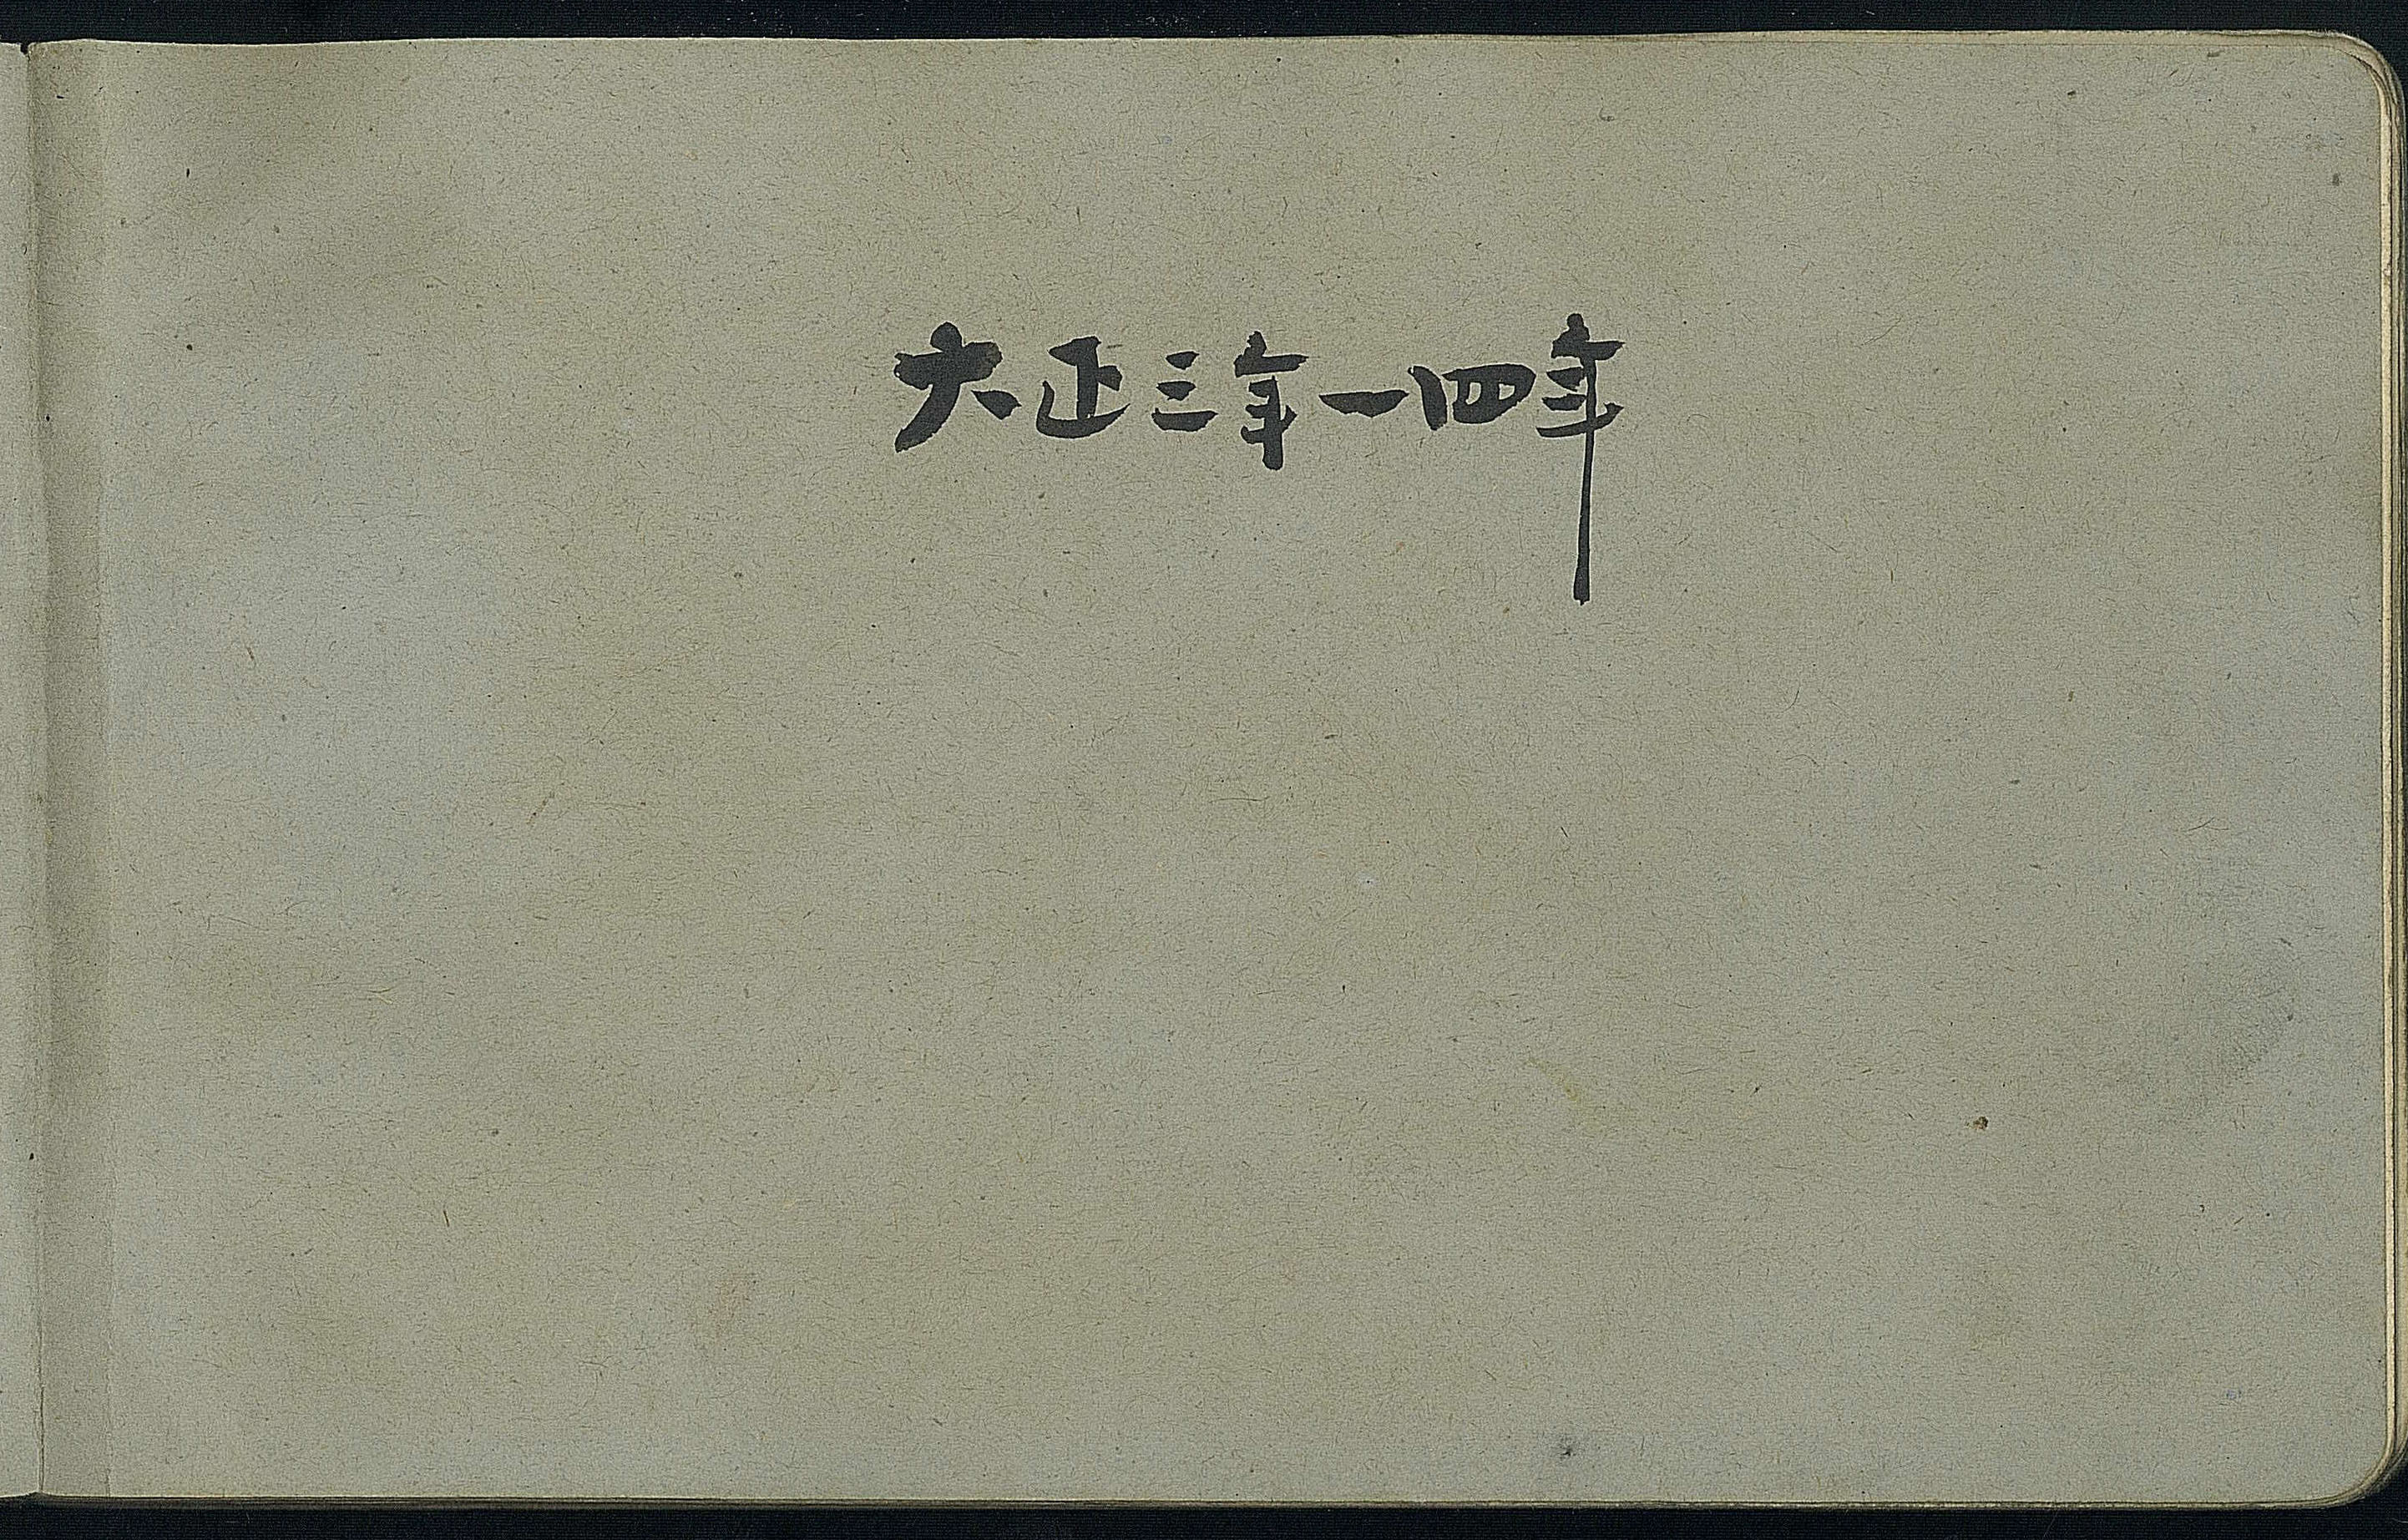 大正三年一四年